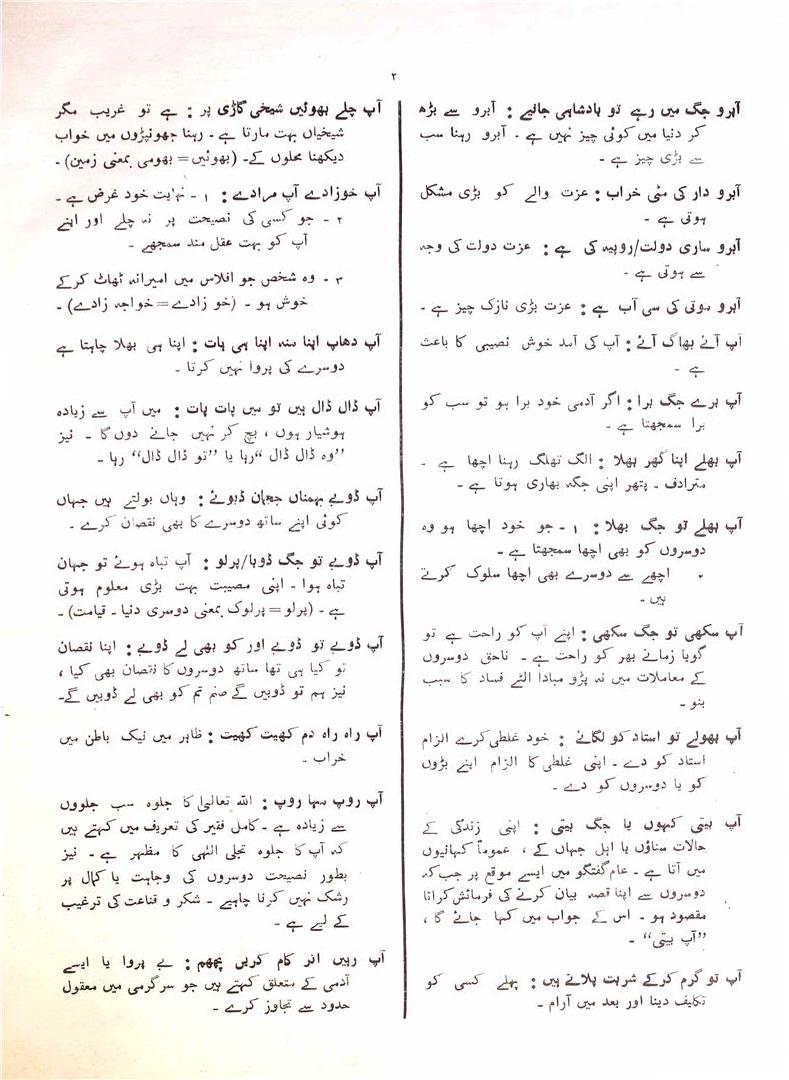 ۲
آبرو جگ میں رہے تو بادشاہی جانیے : آبرو سے بڑھ
کر دنیا میں کوئی چیز نہیں ہے ۔ آبرو رہنا سب
سے بڑی چیز ہے ۔
آبرو دار کی مٹی خراب : عزت والے کو بڑی مشکل
ہوتی ہے ۔
آبرو ساری دولت/روپیہ کی ہے : عزت دولت کی وجہ
سے ہوتی ہے ۔
آبرو موتی کی سی آب ہے : عزت بڑی نازک چیز ہے ۔
آپ آئے بھاگ آئے : آپ کی آمد خوش نصیبی کا باعث
ہے ۔
آپ برے جگ برا : اگر آدمی خود برا ہو تو سب کو
برا سمجھتا ہے ۔
آپ بھلے اپنا گھر بھلا : الگ تھلگ رہنا اچھا ہے ۔
مترادف ۔ پتھر اپنی جگہ بھاری ہوتا ہے ۔
آپ بھلے تو جگ بھلا : ۱ ۔ جو خود اچھا ہو وہ
دوسروں کو بھی اچھا سمجھتا ہے ۔
اچھے سے دوسرے بھی اچھا سلوک کرتے
ہیں ۔
آپ سکھی تو جگ سکھی : اپنے آپ کو راحت ہے تو
گویا زمانے بھر کو راحت ہے ۔ ناحق دوسروں
کے معاملات میں نہ پڑو مبادا الٹے فساد کا سبب
بنو ۔
آپ بھولے تو استاد کو لگائے : خود غلطی کرے الزام
استاد کو دے ۔ اپنی غلطی کا الزام اپنے بڑوں
کو یا دوسروں کو دے ۔
آپ بیتی کہوں یا جگ بیتی : اپنی زندگی کے
حالات سناؤں یا اہل جہاں کے ، عموماً کہانیوں
میں آتا ہے ۔ عام گفتگو میں ایسے موقع پر جب کہ
دوسروں سے اپنا قصہ بیان کرنے کی فرمائش کرانا
مقصود ہو ۔ اس کے جواب میں کہا جائے گا ،
”آپ بیتی“ ۔
آپ تو گرم کرکے شربت پلاتے ہیں : پہلے کسی کو
تکلیف دینا اور بعد میں آرام ۔
آپ چلے بھوئیں شیخی گاڑی پر : ہے تو غریب مگر
شیخیاں بہت مارتا ہے ۔ رہنا جھونپڑوں میں خواب
دیکھنا محلوں کے۔ (بھوئیں = بھومی بمعنی زمین) ۔
آپ خوزادے آپ مرادے : ۱ ۔ نہایت خود غرض ہے ۔
۲ ۔ جو کسی کی نصیحت پر نہ چلے اور اپنے
آپ کو بہت عقل مند سمجھے ۔
۳ ۔ وہ شخص جو افلاس میں امیرانہ ٹھاٹ کرکے
خوش ہو ۔ (خو زادے = خواجہ زادے) ۔
آپ دھاپ اپنا منہ اپنا ہی ہات : اپنا ہی بھلا چاہتا ہے
دوسرے کی پروا نہیں کرتا ۔
آپ ڈال ڈال ہیں تو میں پات پات : میں آپ سے زیادہ
ہوشیار ہوں ، بچ کر نہیں جانے دوں گا ۔ نیز
”وہ ڈال ڈال “رہا یا ”تو ڈال ڈال“ رہا ۔
آپ ڈوبے بہمناں ججمان ڈبوئے : وہاں بولتے ہیں جہاں
کوئی اپنے ساتھ دوسرے کا بھی نقصان کرے ۔
آپ ڈوبے تو جگ ڈوبا/پرلو : آپ تباہ ہوئے تو جہان
تباہ ہوا ۔ اپنی مصیبت بہت بڑی معلوم ہوتی
ہے ۔ (پرلو = پرلوک بمعنی دوسری دنیا ۔ قیامت) ۔
آپ ڈوبے تو ڈوبے اور کو بھی لے ڈوبے : اپنا نقصان
تو کیا ہی تھا ساتھ دوسروں کا نقصان بھی کیا ،
نیز ہم تو ڈوبیں گے صنم تم کو بھی لے ڈوبیں گے۔
آپ راہ راہ دم کھیت کھیت : ظاہر میں نیک باطن میں
خراب ۔
آپ روپ سہا روپ : اللہ تعالیٰ کا جلوہ سب جلووں
سے زیادہ ہے ۔ کامل فقیر کی تعریف میں کہتے ہیں
کہ آپ کا جلوہ تجلی الٰہی کا مظہر ہے ۔ نیز
بطور نصیحت دوسروں کی وجاہت یا کمال پر
رشک نہیں کرنا چاہیے ۔ شکر و قناعت کی ترغیب
کے لیے ہے ۔
آپ رہیں اتر کام کریں پچھم : بے پروا یا ایسے
آدمی کے متعلق کہتے ہیں جو سرگرمی میں معقول
حدود سے تجاوز کرے ۔